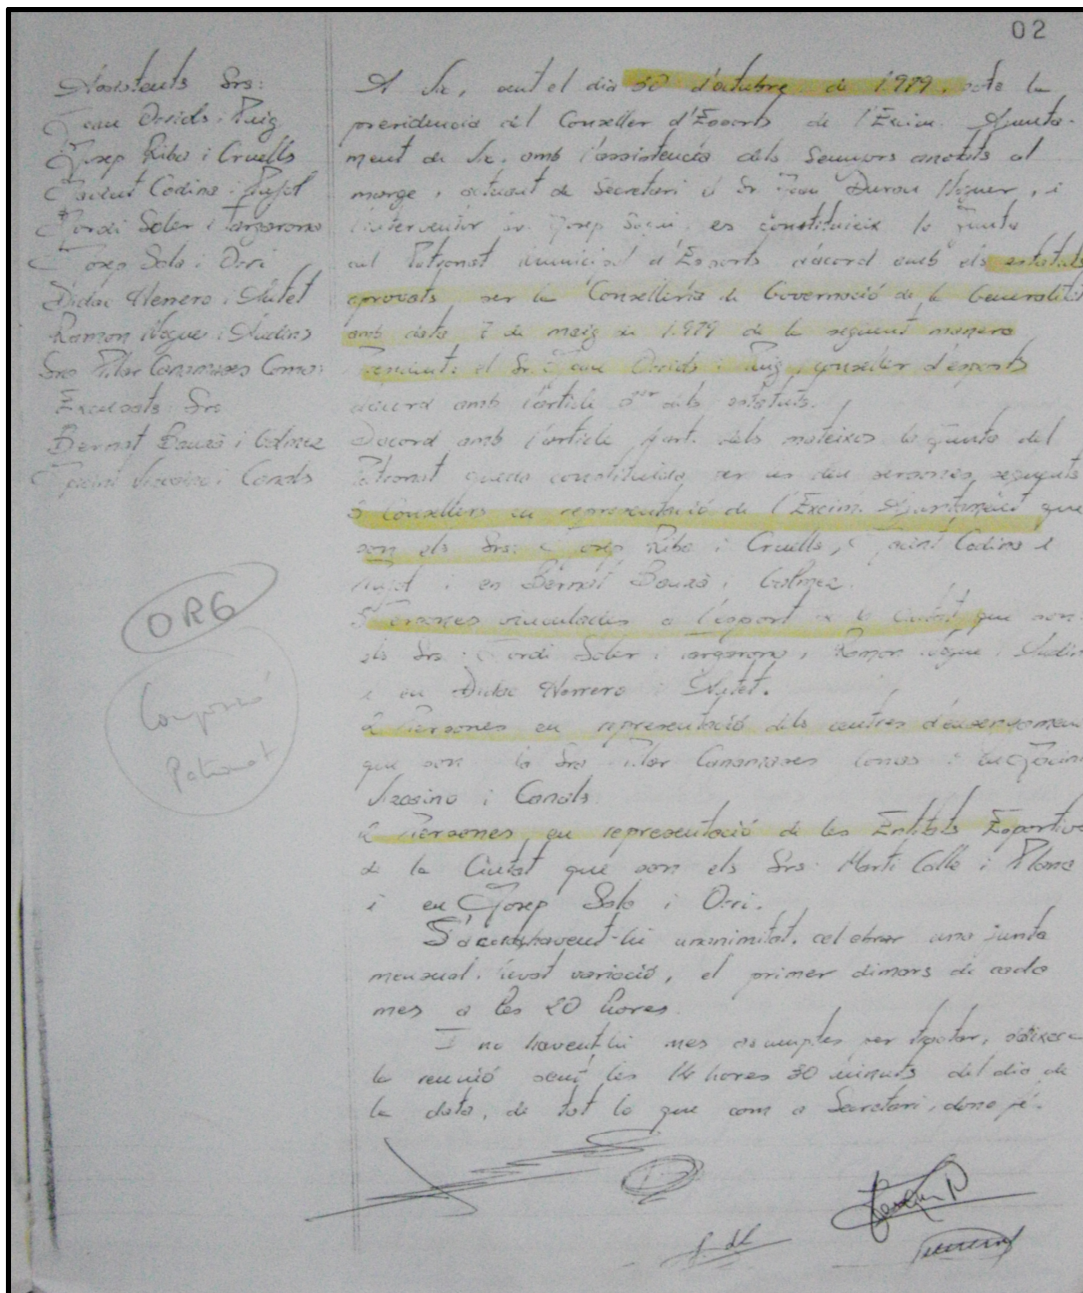 02
Assistents Srs:
Joan Orriols i Puig
Josep Riba i Cruells
Jacint Codina i Pujol
Jordi Soler i
Josep Sala i Orri
Dídac Herrero i Autet
Ramon Nogue i
Sra Pilar Canamases Comas
Excusats Srs
Bernat Bauzà i Galmez
Jacint i Canals
A Vic, sent el dia 30 d'octubre de 1.979, sota la
presidencia del Conseller d'Esports de l'Excim. Ajunta-
ment de Vic, amb l'assistencia dels Senyors anotats al
marge, actuant de Secretari el Sr Joan Durau Noguer, i
l'interventor Sr. Josep es constitueix la Junta
del Patronat Municipal d'Esports d'acord amb els estatuts
aprovats per la Conselleria de Governació de la Generalitat
amb data 7 de maig de 1.979 de la següent manera
President: el Sr. Joan Orriols i Puig, conseller d'esports
d'acord amb l'article dels estatuts.
D'acord amb l'article dels mateixos la Junta del
Patronat queda constituida per les deu persones següents
3 Consellers en representació de l'Excim. Ajuntament que
son els Srs: Josep Riba i Cruells, Jacint Codina i
Pujol i en Bernat Bauzà i Galmez.
3 Persones vinculades a l'esport de la Ciutat que son
els Srs: Jordi Soler i Ramon Nogue i
i en Didac Herrero i Autet.
2 Persones en representació dels centres d'ensenyament
que son la Sra Pilar Canamases Comas i en Jacint
i Canals.
2 Persones en representació de les Entitats Esportives
de la Ciutat que son els Srs. Marti Colle i Plana
i en Josep Sala i Orri.
S'acorda havent-hi unanimitat, celebrar una junta
mensual, llevat variació, el primer dimars de cada
mes a les 20 hores.
I no havent-hi mes asumptes per tractar, s'aixeca
la reunió sent les 14 hores 30 minuts del dia de
la data, de tot lo que com a Secretari, dono fé.
ORG
Composició
Patronat